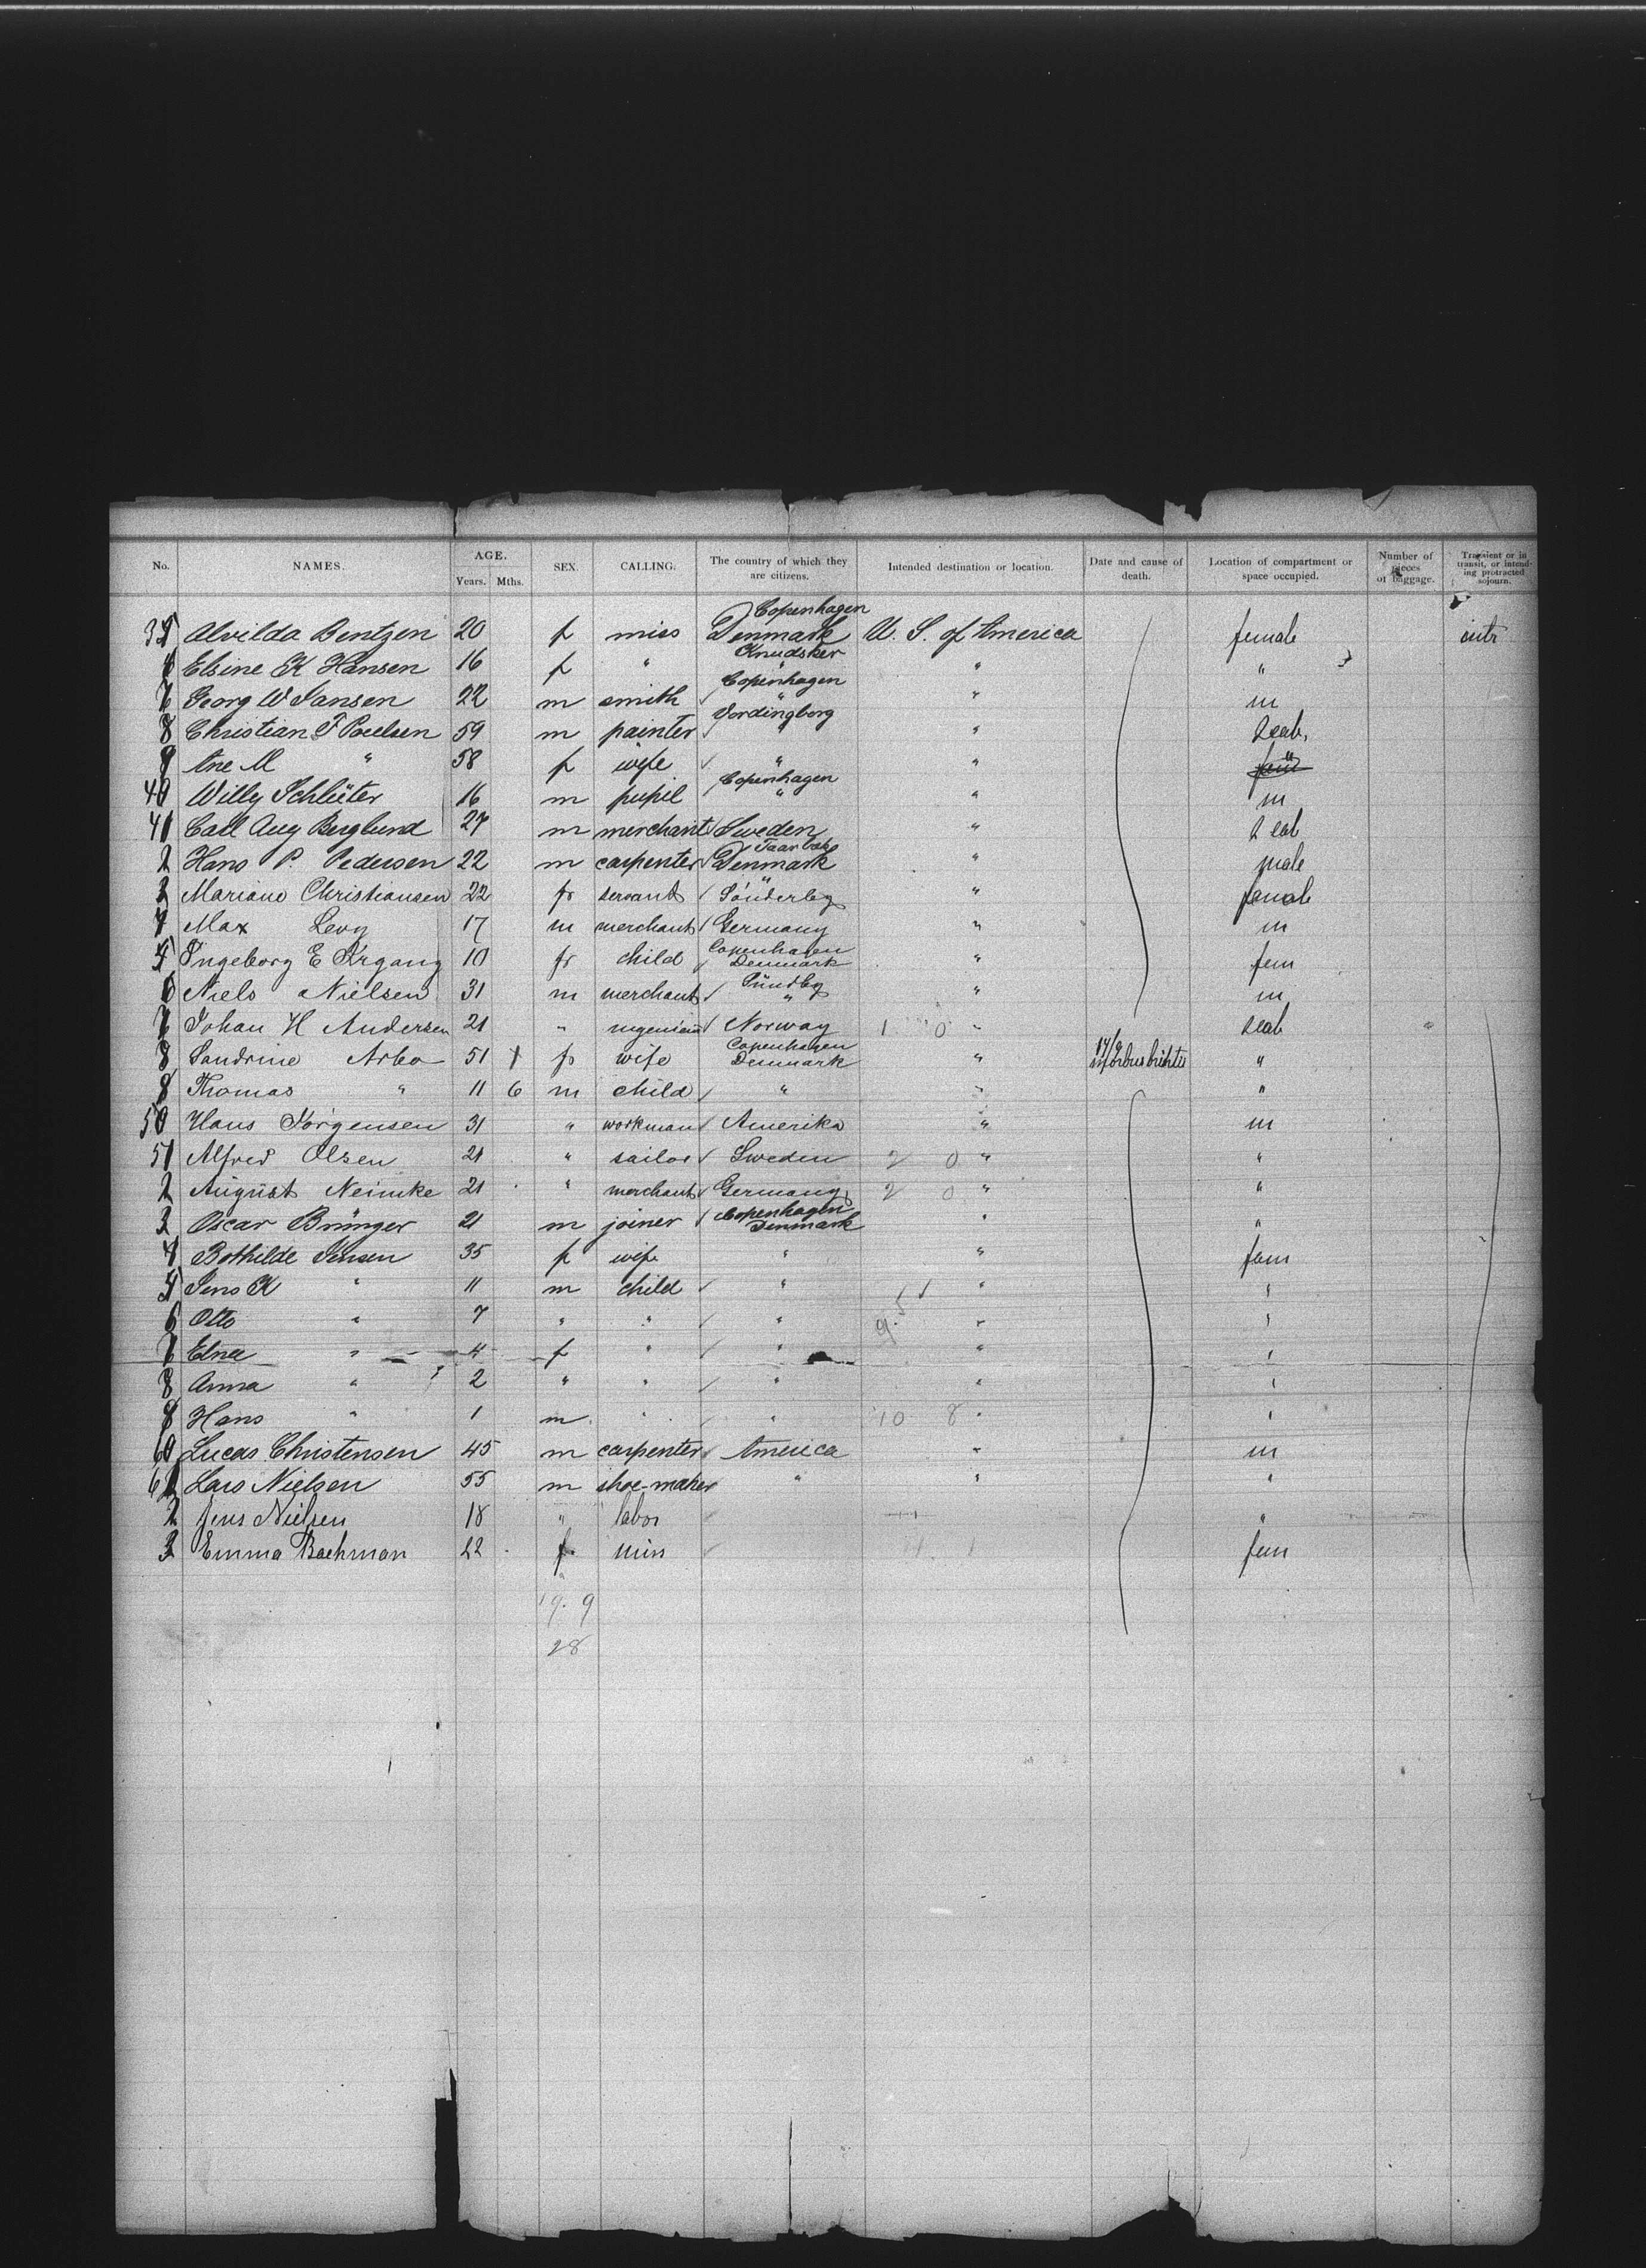 No. NAMES. AGE. Years. Mths. SEX. CALLING. The country of which they are citizens. Intended destination or location. Date and cause of death. Location of compartment or space occupied. Number of pieces of baggage. Transient or in transit, or intending protracted sojourn.
Copenhagen
Alvilda Bentzen 20 f miss Denmark U. S. of America female
Knudsker
Elsine K Hansen 16 f " " " "
Copenhagen
Georg W Jansen 22 m smith " " m
Vordingborg
8 Christian F Poulsen 59 m painter " " 2 cab.
9 Ane M " 58 f wife " "
Copenhagen
40 Willy Schlüter 16 m pupil " " m
41 Carl Aug Berglund 27 m merchant Sweden " 2 cab
2 Hans P. Pedersen 22 m carpenter Denmark " male
3 Mariane Christiansen 22 f servant Sönderby " female
Max Levy 17 m merchant Germany " m
Copenhagen
Ingeborg E Krgang 10 f child Denmark " fem
Sündby
Niels Nielsen 31 m merchant " " m
Johan H Andersen 21 " Norway 1 0 " 2 cab
Copenhagen
8 Sandrine Arbo 51 f wife Denmark " "
Thomas " 11 6 m child " " "
50 Hans Jörgensen 31 " workman Amerika " m
51 Alfred Olsen 21 " sailor Sweden 2 0 " "
2 August Neimke 21 " merchant Germany 2 0 " "
Copenhagen
3 Oscar Brünger 21 m joiner Denmark " "
4 Bothilde Jensen 35 f wife " " fem
5 Jens K " 11 m child " " "
6 Otto " 7 " " " " "
Elna " 4 f " " " "
8 Anna " 2 " " " " "
Hans " 1 m " " 10 8 " "
60 Lucas Christensen 45 m carpenter America " m
61 Lars Nielsen 55 m shoe-maker " " "
2 Jens Nielsen 18 " labor "
3 Emma Bachman 22 f miss fem
19. 9
28